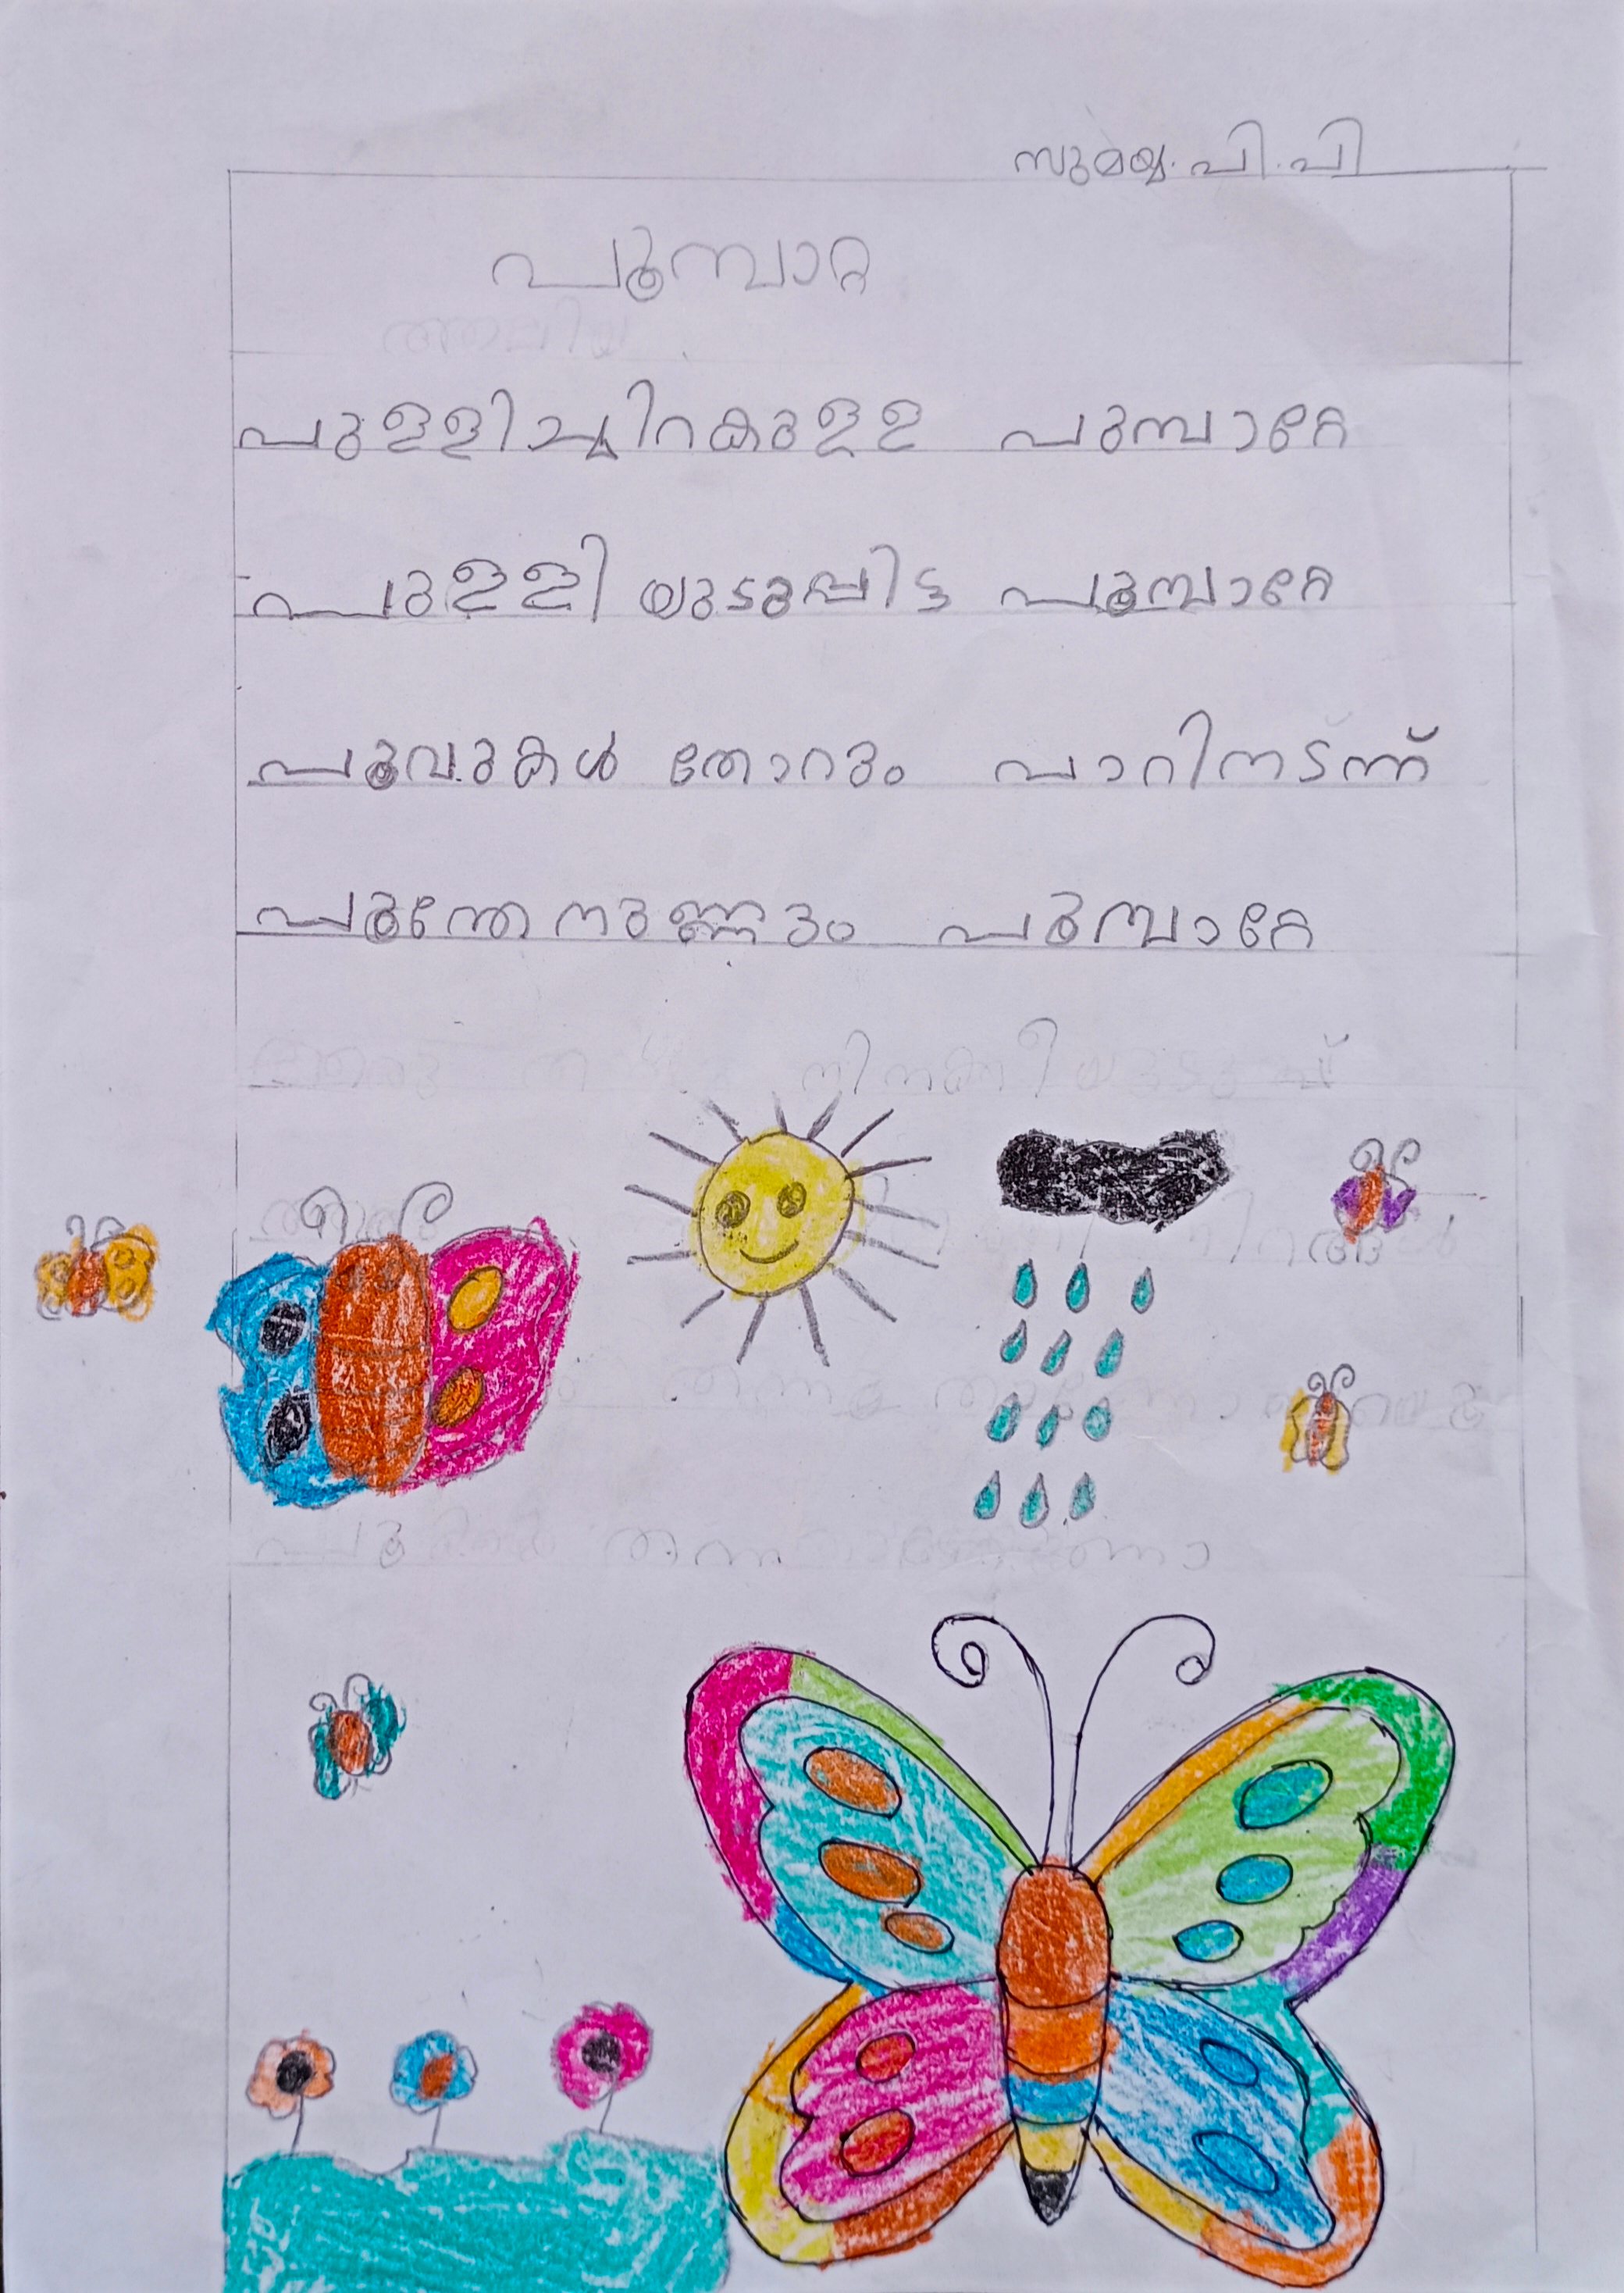 സുമയ്യ. പി. പി
പൂമ്പാറ്റ
പുള്ളിച്ചിറകുള്ള പുമ്പാറ്റേ
പുള്ളി യുടുപ്പിട്ട പൂമ്പാറ്റേ
പൂവുകൾ തോറും പാറിനടന്ന്
പൂന്തേനുണ്ണും പൂമ്പാറ്റേ